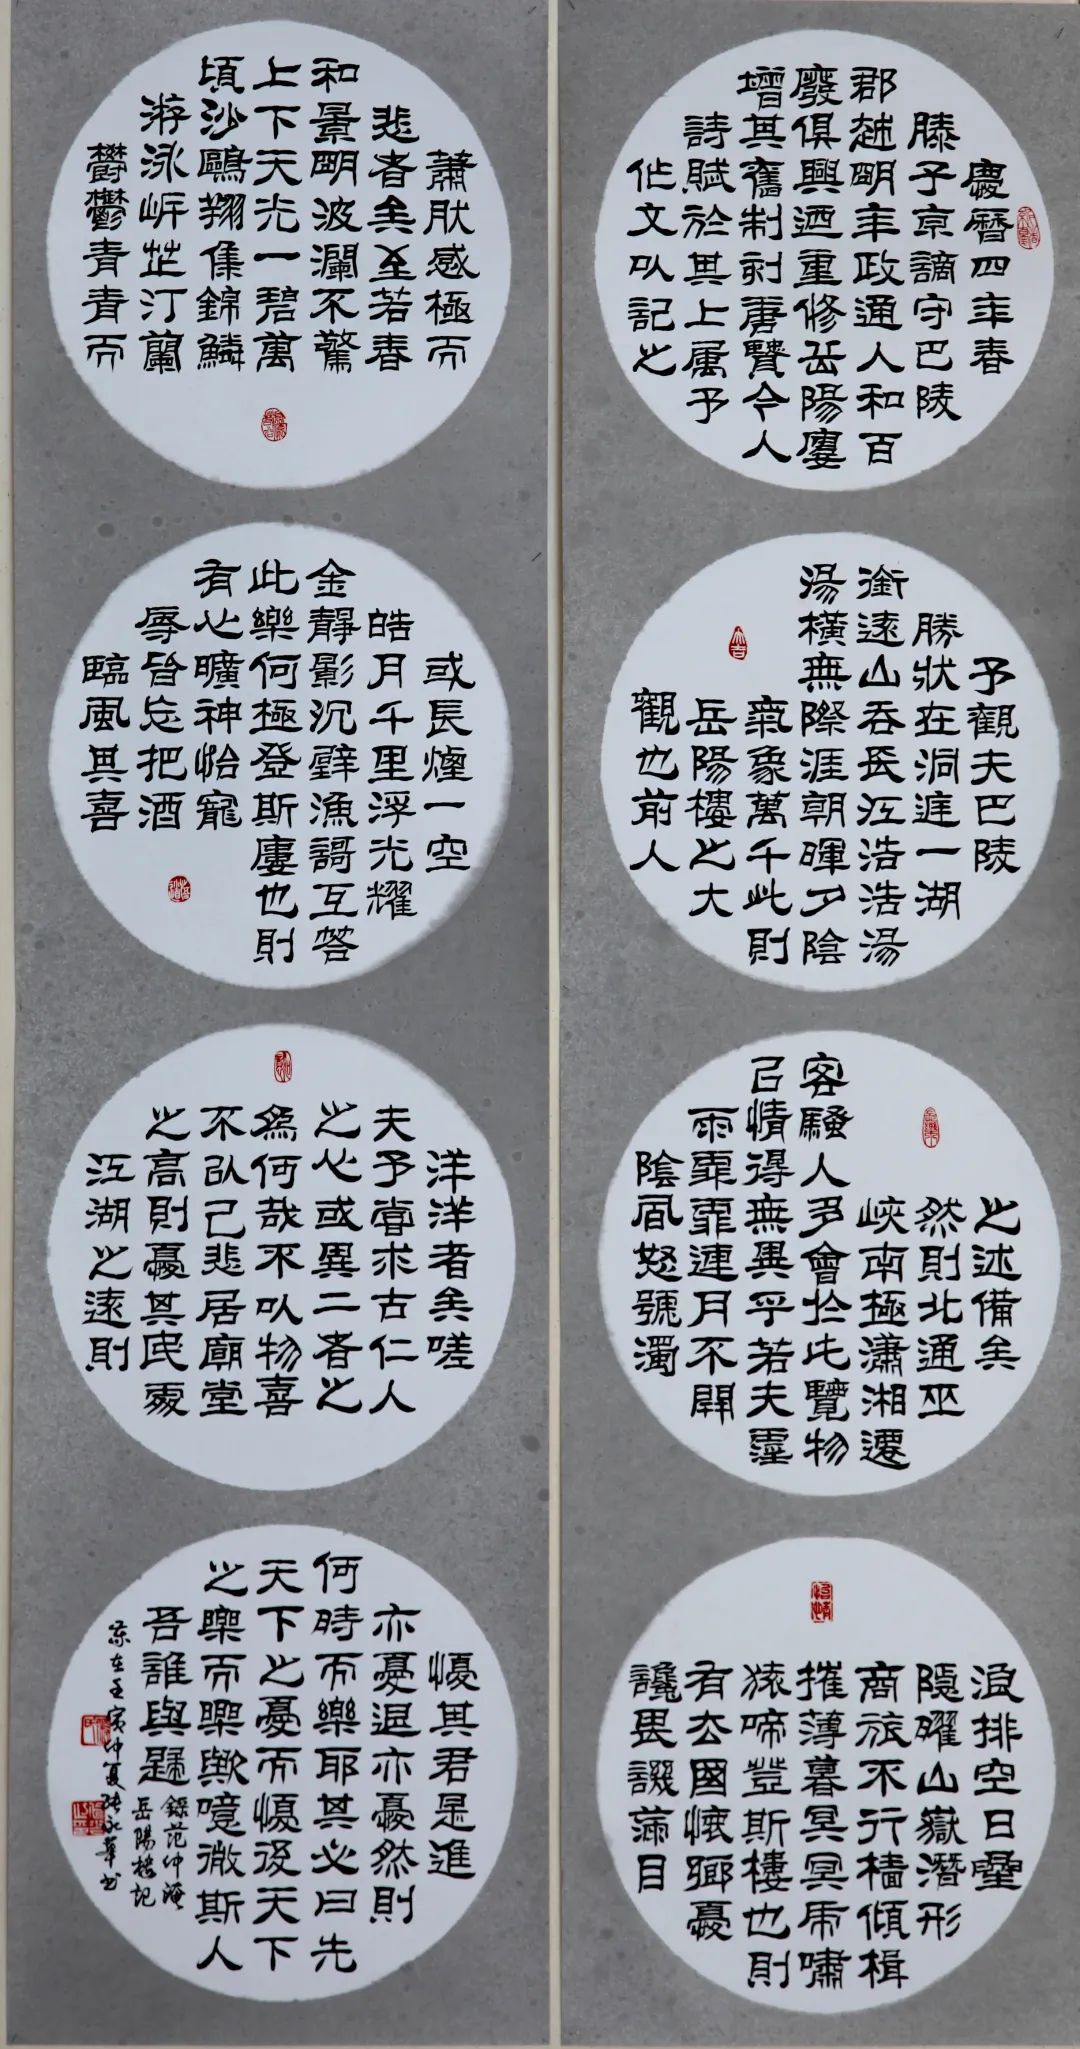 慶曆四年春
滕子京謫守巴陵
郡越明年政通人和百
廢俱興迺重修岳陽廔
增其舊制刻唐賢今人
詩賦於其上属予
作文以記之
予觀夫巴陵
勝狀在洞庭一湖
銜遠山吞長江浩浩湯
湯橫無際涯朝暉夕陰
氣象萬千此則
岳陽樓之大
觀也前人
之述備矣
然則北通巫
峽南極瀟湘遷
客騷人多會於此覽物
己情得無異乎若夫霪
雨霏霏連月不開
陰風怒號濁
浪排空日曐
隱曜山嶽潛形
商旅不行檣傾楫
摧薄暮冥冥虎嘯
猿啼登斯樓也則
有去國懷鄉憂
讒畏譏滿目
蕭肰感極而
悲者矣至若春
和景明波瀾不驚
上下天光一碧萬
頃沙鷗翔集錦鱗
游泳岸芷汀蘭
鬱鬱青青而
或長煙一空
皓月千里浮光耀
金靜影沉璧漁謌互答
此樂何極登斯廔也則
有心曠神怡寵
辱皆忘把酒
臨風其喜
洋洋者矣嗟
夫予嘗求古仁人
之心或異二者之
為何哉不以物喜
不以己悲居廟堂
之高則憂其民處
江湖之遠則
憂其君是進
亦憂退亦憂然則
何時而樂耶其必曰先
天下之憂而憂後天下
之樂而樂歟噫微斯人
吾誰與歸
錄范仲淹
岳陽樓記
歲在壬寅仲夏張永華書